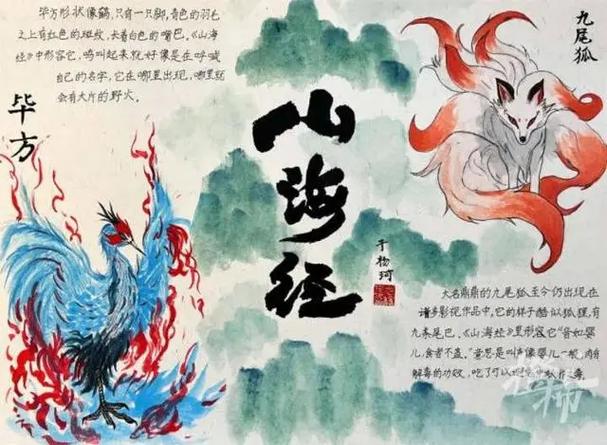 毕方形状像鹤,只有一只脚,青色的羽毛
之上有红色的斑纹,长着白色的嘴巴。《山海
经》中形容它,鸣叫起来就好像是在呼喊
自己的名字,它在哪里出现,哪里就
会有大片的野火。
毕方
山海经
于杨珂
九尾狐
大名鼎鼎的九尾狐至今仍出现在
诸多影视作品中,它的样子酷似狐狸,有
九条尾巴。《山海经》里形容它“音如婴
儿,食者不蛊。”意思是叫声像婴儿一般,肉有
解毒的功效,吃了可以